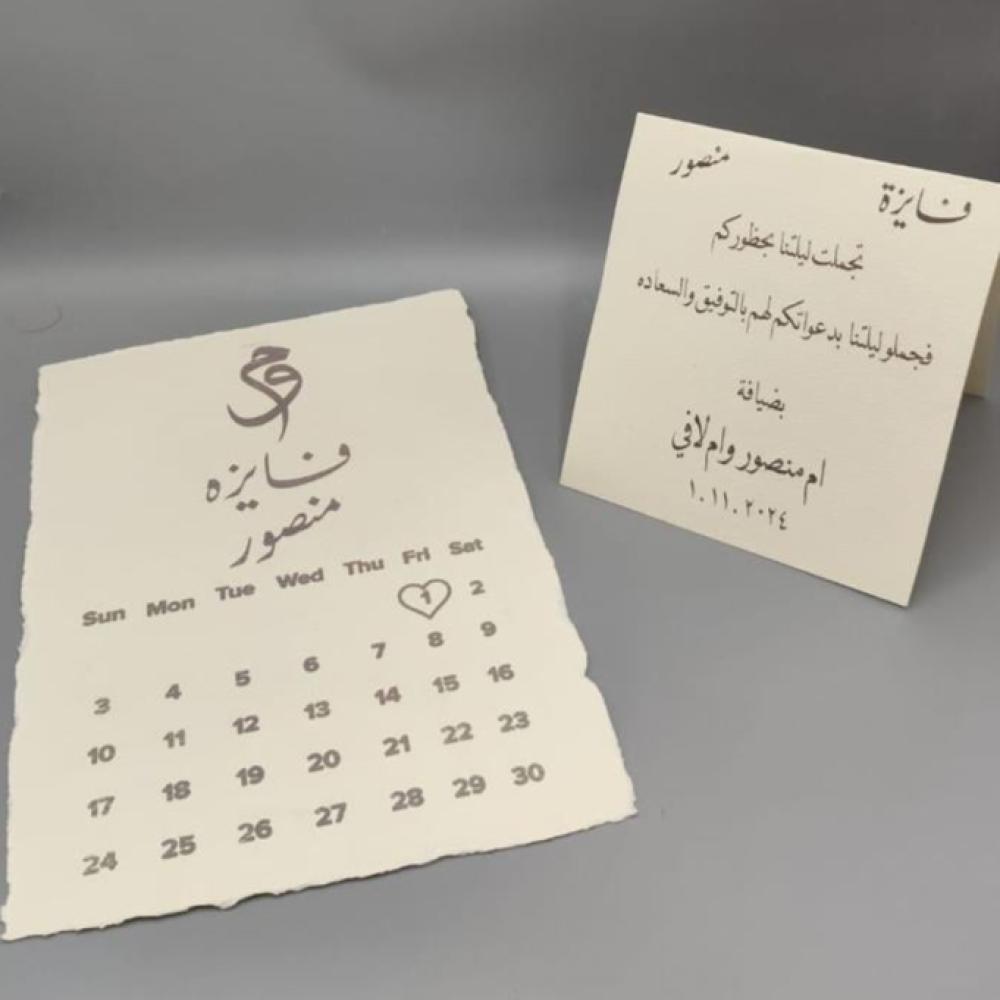 فايزه
منصور
Sun Mon Tue Wed Thu Fri Sat
1 2
3 4 5 6 7 8 9
10 11 12 13 14 15 16
17 18 19 20 21 22 23
24 25 26 27 28 29 30
منصور
فايزة
تجملت ليلتنا بحظوركم
فجملو ليلتنا بدعواتكم لهم بالتوفيق والسعاده
بضيافة
ام منصور وام لافي
١.١١.٢٠٢٤